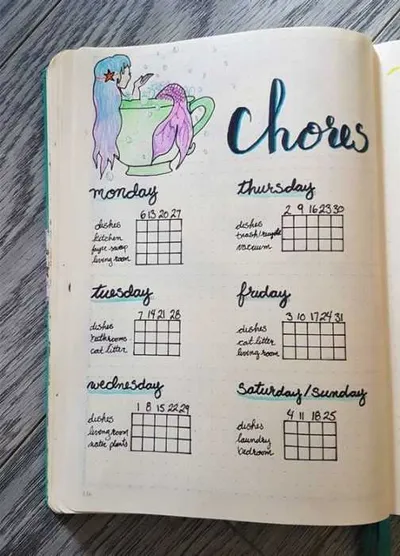 Chores
monday
6 13 20 27
dishes
kitchen
living room
tuesday
7 14 21 28
dishes
bathrooms
cat litter
wednesday
1 8 15 22 29
dishes
living room
water plants
thursday
2 9 16 23 30
dishes
trash/recycle
vacuum
friday
3 10 17 24 31
dishes
cat litter
living room
saturday/sunday
4 11 18 25
dishes
laundry
bedroom